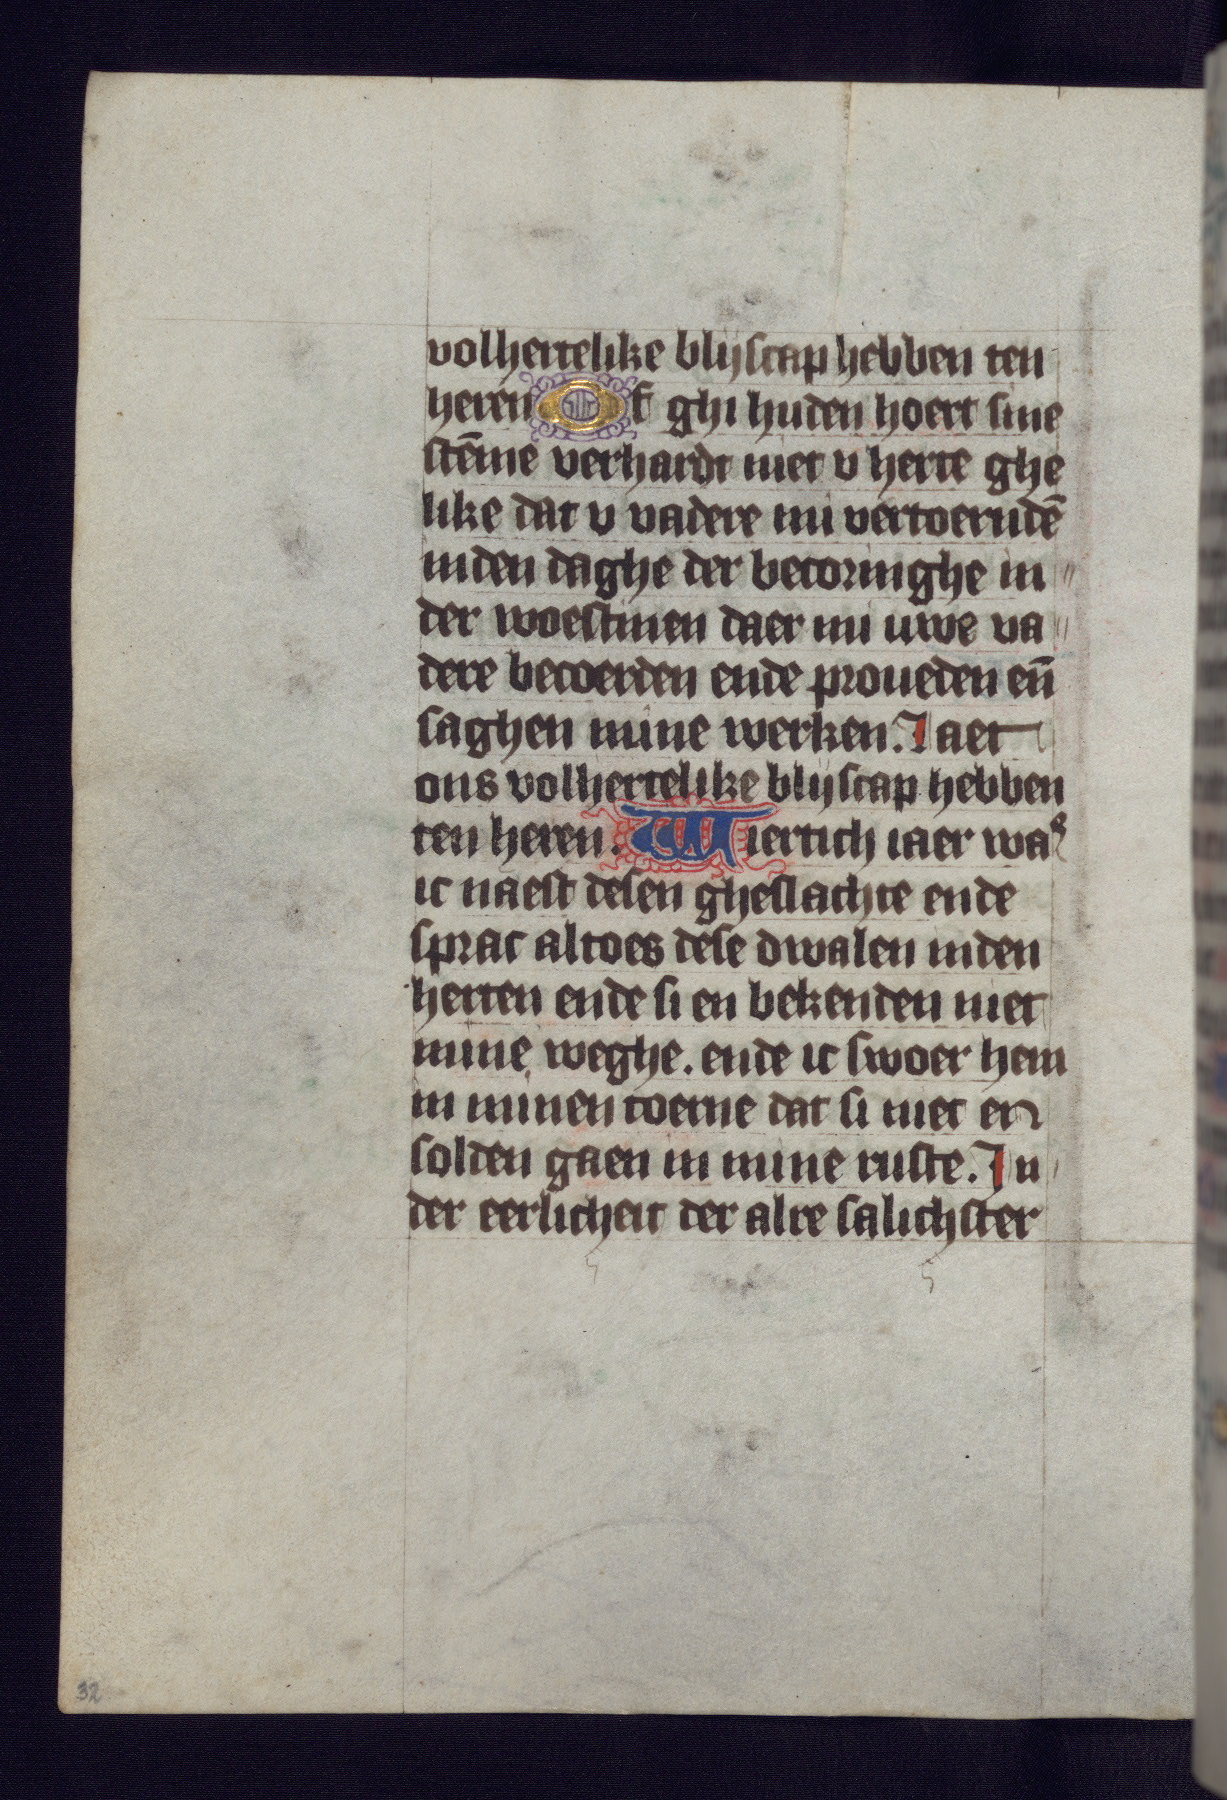 volhertelike blijscap hebben ten
heren Of ghi huden hoert sine
stēme verhardt niet v herte ghe
like dat v vadere mi vertoerndē
inden daghe der becoringhe in
der woestinen daer mi uwe va
dere becoerden ende proueden eñ
saghen mine werken. Iaet
ons volhertelike blijscap hebben
ten heren. Viertich iaer was
ic naest desen gheslachte ende
sprac altoes dese dwalen inden
herten ende si en bekenden niet
mine weghe. ende ic swoer hem
in minen toerne dat si niet en
solden gaen in mine ruste. In
der eerlicheit der alre salichster
32